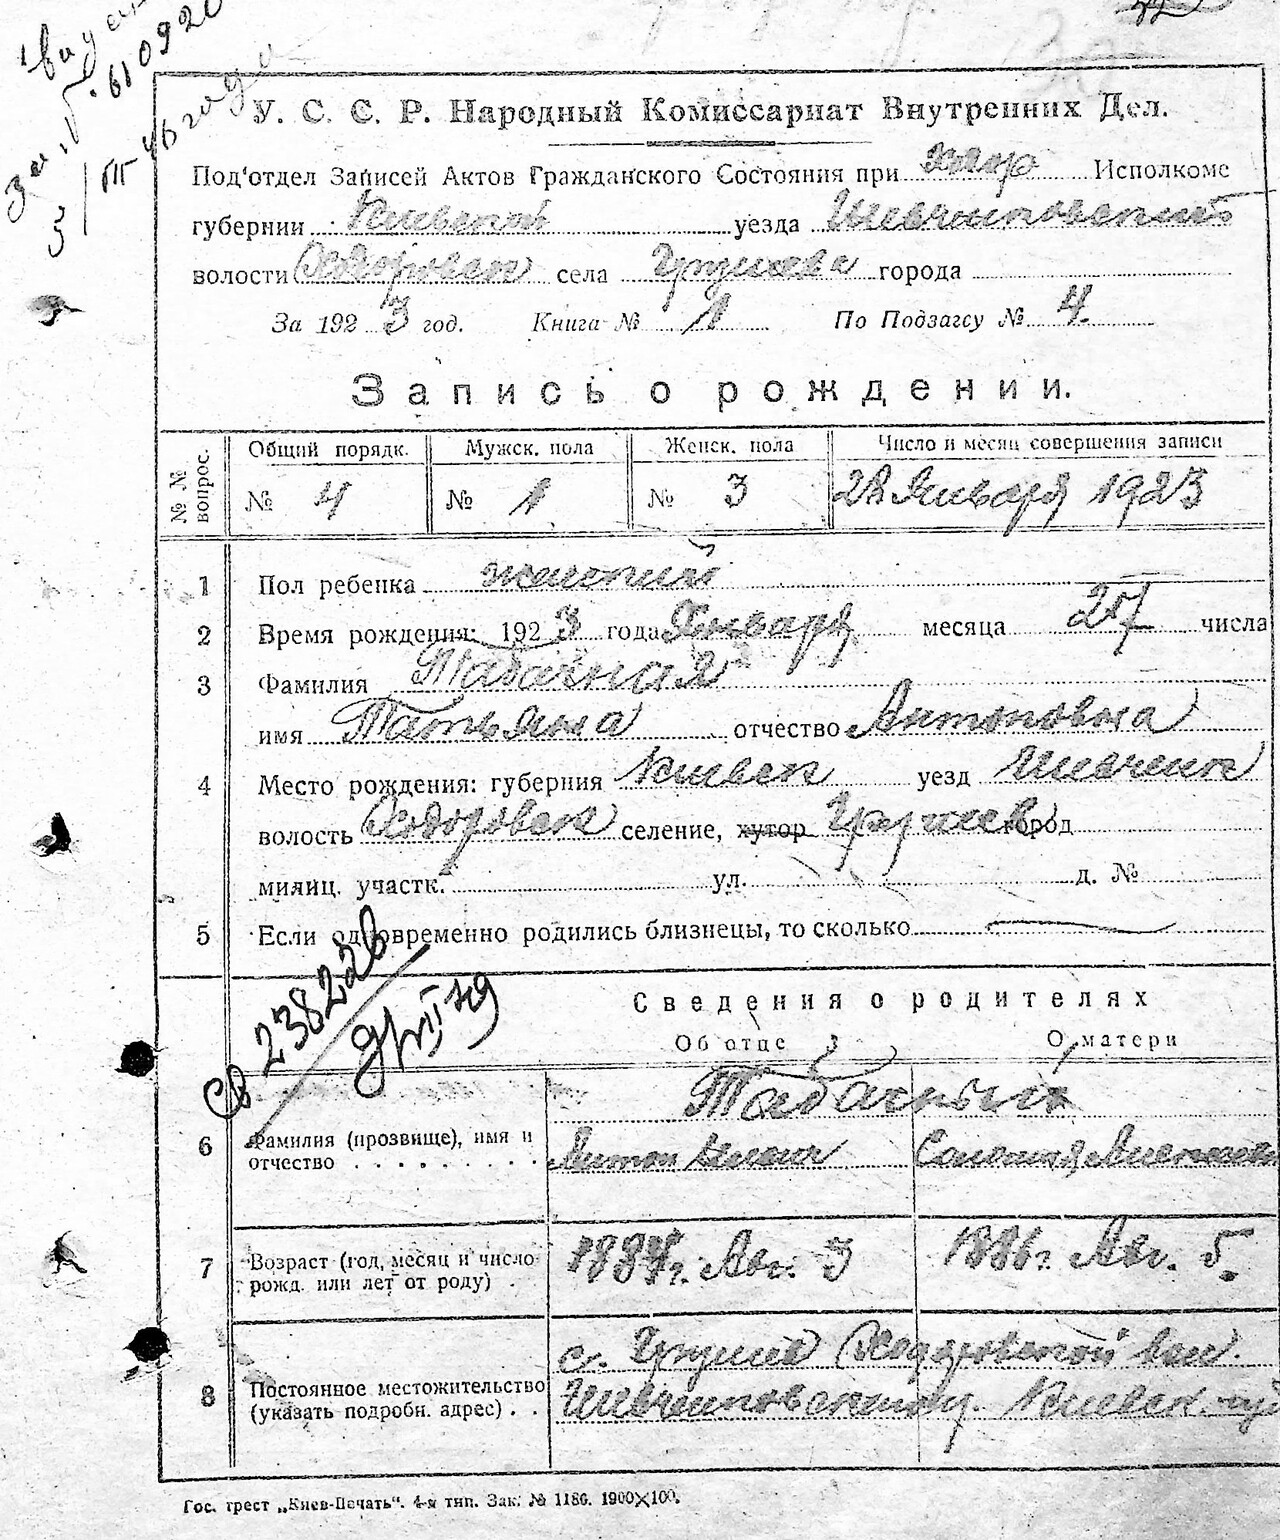 У. С. С. Р. Народный Комиссариат Внутренних Дел.
Под'отдел Записей Актов Гражданского Состояния при Исполкоме
губернии Киевской уезда Шевченковский
волости Ходоровск села Грушева города
За 1923 год. Книга № 1 По Подзагсу № 4.
Запись о рождении.
№ № вопрос.
Общий порядк. Мужск. пола Женск. пола Число и месяц совершения записи
№ 4 № 1 № 3 28 Января 1923
1 Пол ребенка женский
2 Время рождения: 1923 года Января месяца числа
3 Фамилия Табачная
имя Татьяна отчество Антоновна
4 Место рождения: губерния Киевск уезд Шевченк
волость Ходоровск селение, хутор Грушев город
милиц. участк. ул. д. №
5 Если одновременно родились близнецы, то сколько
св 238226
Сведения о родителях
Об отце О матери
Табачный
6 Фамилия (прозвище), имя и
отчество
Антон Соломия
7 Возраст (год, месяц и число
рожд. или лет от роду) .
1884 г. Авг. 3 1886 г. Авг. 5.
с. Грушев Ходоровской вол.
8 Постоянное местожительство
(указать подробн. адрес) . .
Шевченковском у. Киевск. губ
Гос. трест „Киев-Печать". 4-я тип. Зак. № 1186. 1900×100.